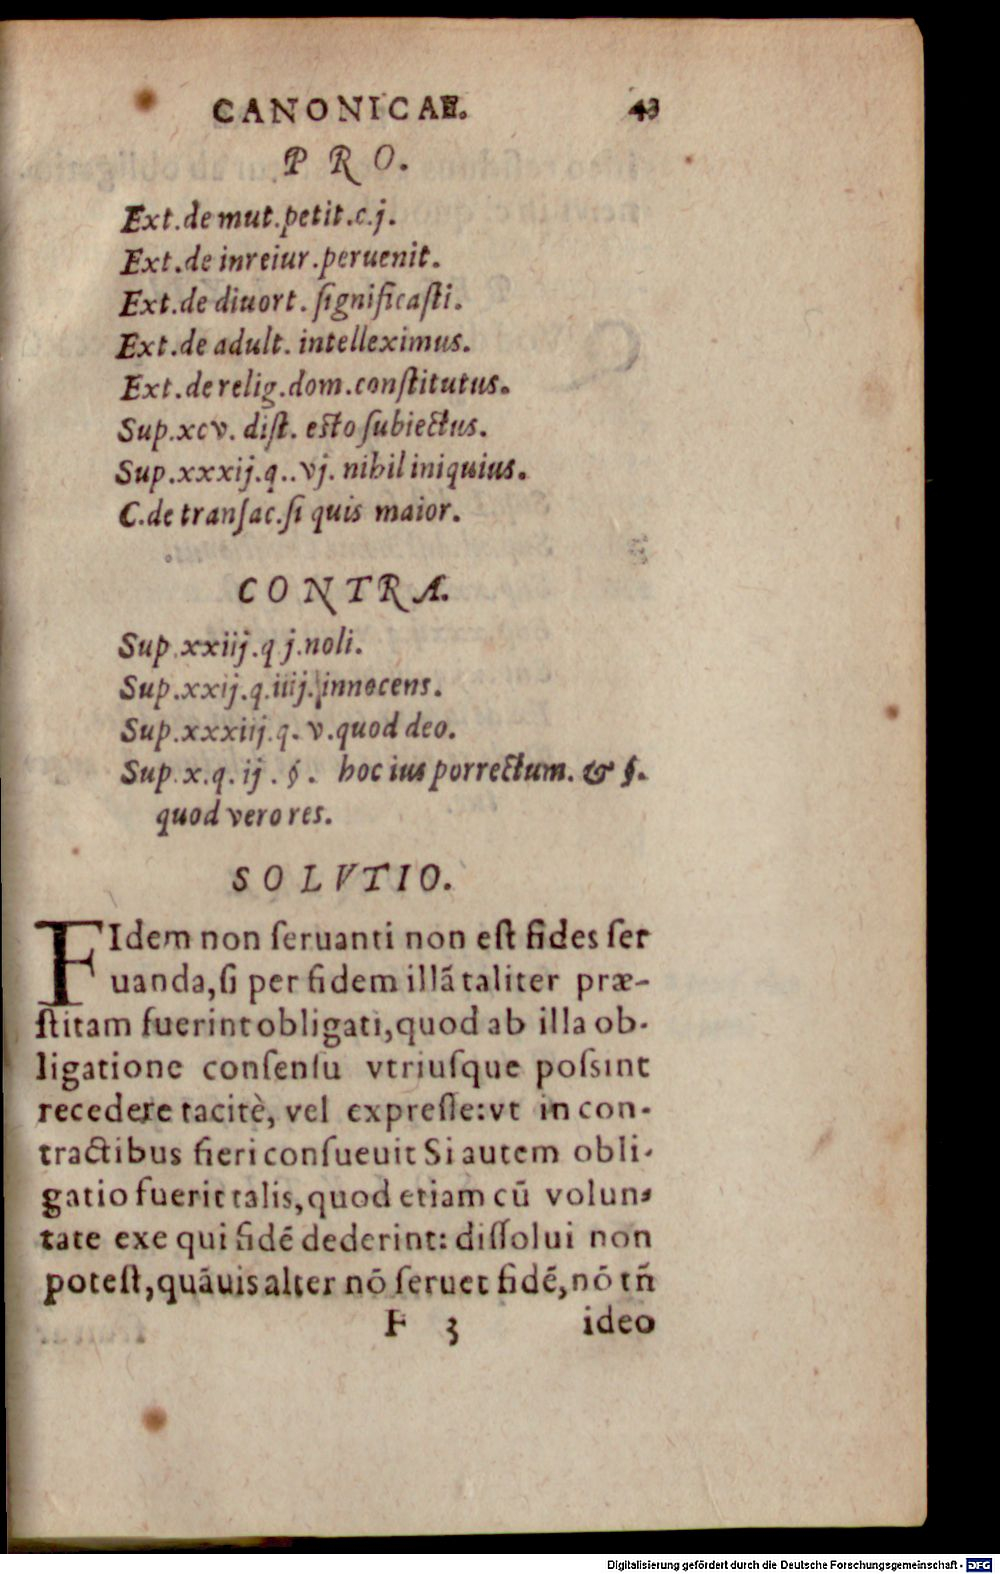 CANONICAE. 43
PRO.
Ext.de mut.petit.c.j.
Ext.de inreiur.peruenit.
Ext.de diuort.ſignificaſti.
Ext.de adult. intelleximus.
Ext.de relig.dom.conſtitutus.
Sup.xcv. diſt. eſto ſubiectus.
Sup.xxxij.q..vj. nihil iniquius.
C.de tranſac.ſi quis maior.
CONTRA.
Sup.xxiij.q j.noli.
Sup.xxij.q.iiij.innocens.
Sup.xxxiij.q. v.quod deo.
Sup.x.q. ij . §. hoc ius porrectum. & §.
quod vero res.
SOLVTIO.
FIdem non ſeruanti non eſt fides ſer
uanda,ſi per fidem illā taliter præ-
ſtitam fuerint obligati,quod ab illa ob-
ligatione conſenſu vtriuſque poſsint
recedere tacitè, vel expreſſe:vt in con-
tractibus fieri conſueuit Si autem obli-
gatio fuerit talis,quod etiam cū volun-
tate exe qui fidē dederint: diſſolui non
poteſt,quāuis alter nō ſeruet fidē,nō tn̄
F 3 ideo
Digitalisierung gefördert durch die Deutsche Forschungsgemeinschaft - DFG